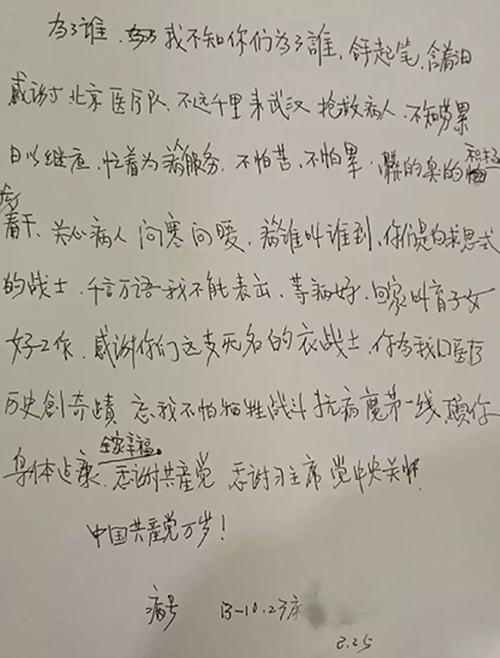 为了谁、我不知你们为了誰，舒起笔，含着泪
感谢北京医疗队、不远千里来武汉抢救病人、不知劳累
日以继夜、忙着为病服务、不怕苦、不怕累、髒的臭的积极
抢着干、关心病人问寒问暖、病谁叫谁到、你们是白求恩式
的战士、千言万语我不能表出、等病好、回家叫育子女
好工作、感谢你们这支无名的衣战士、你为我口医疗
历史創奇蹟 忘我不怕牺牲战斗抗病魔第一线 願你
身体占康、全家幸福。忠谢共產党 忠谢习主席党中央关怀
中国共產党万岁！
病号 13-10.23床
2.25